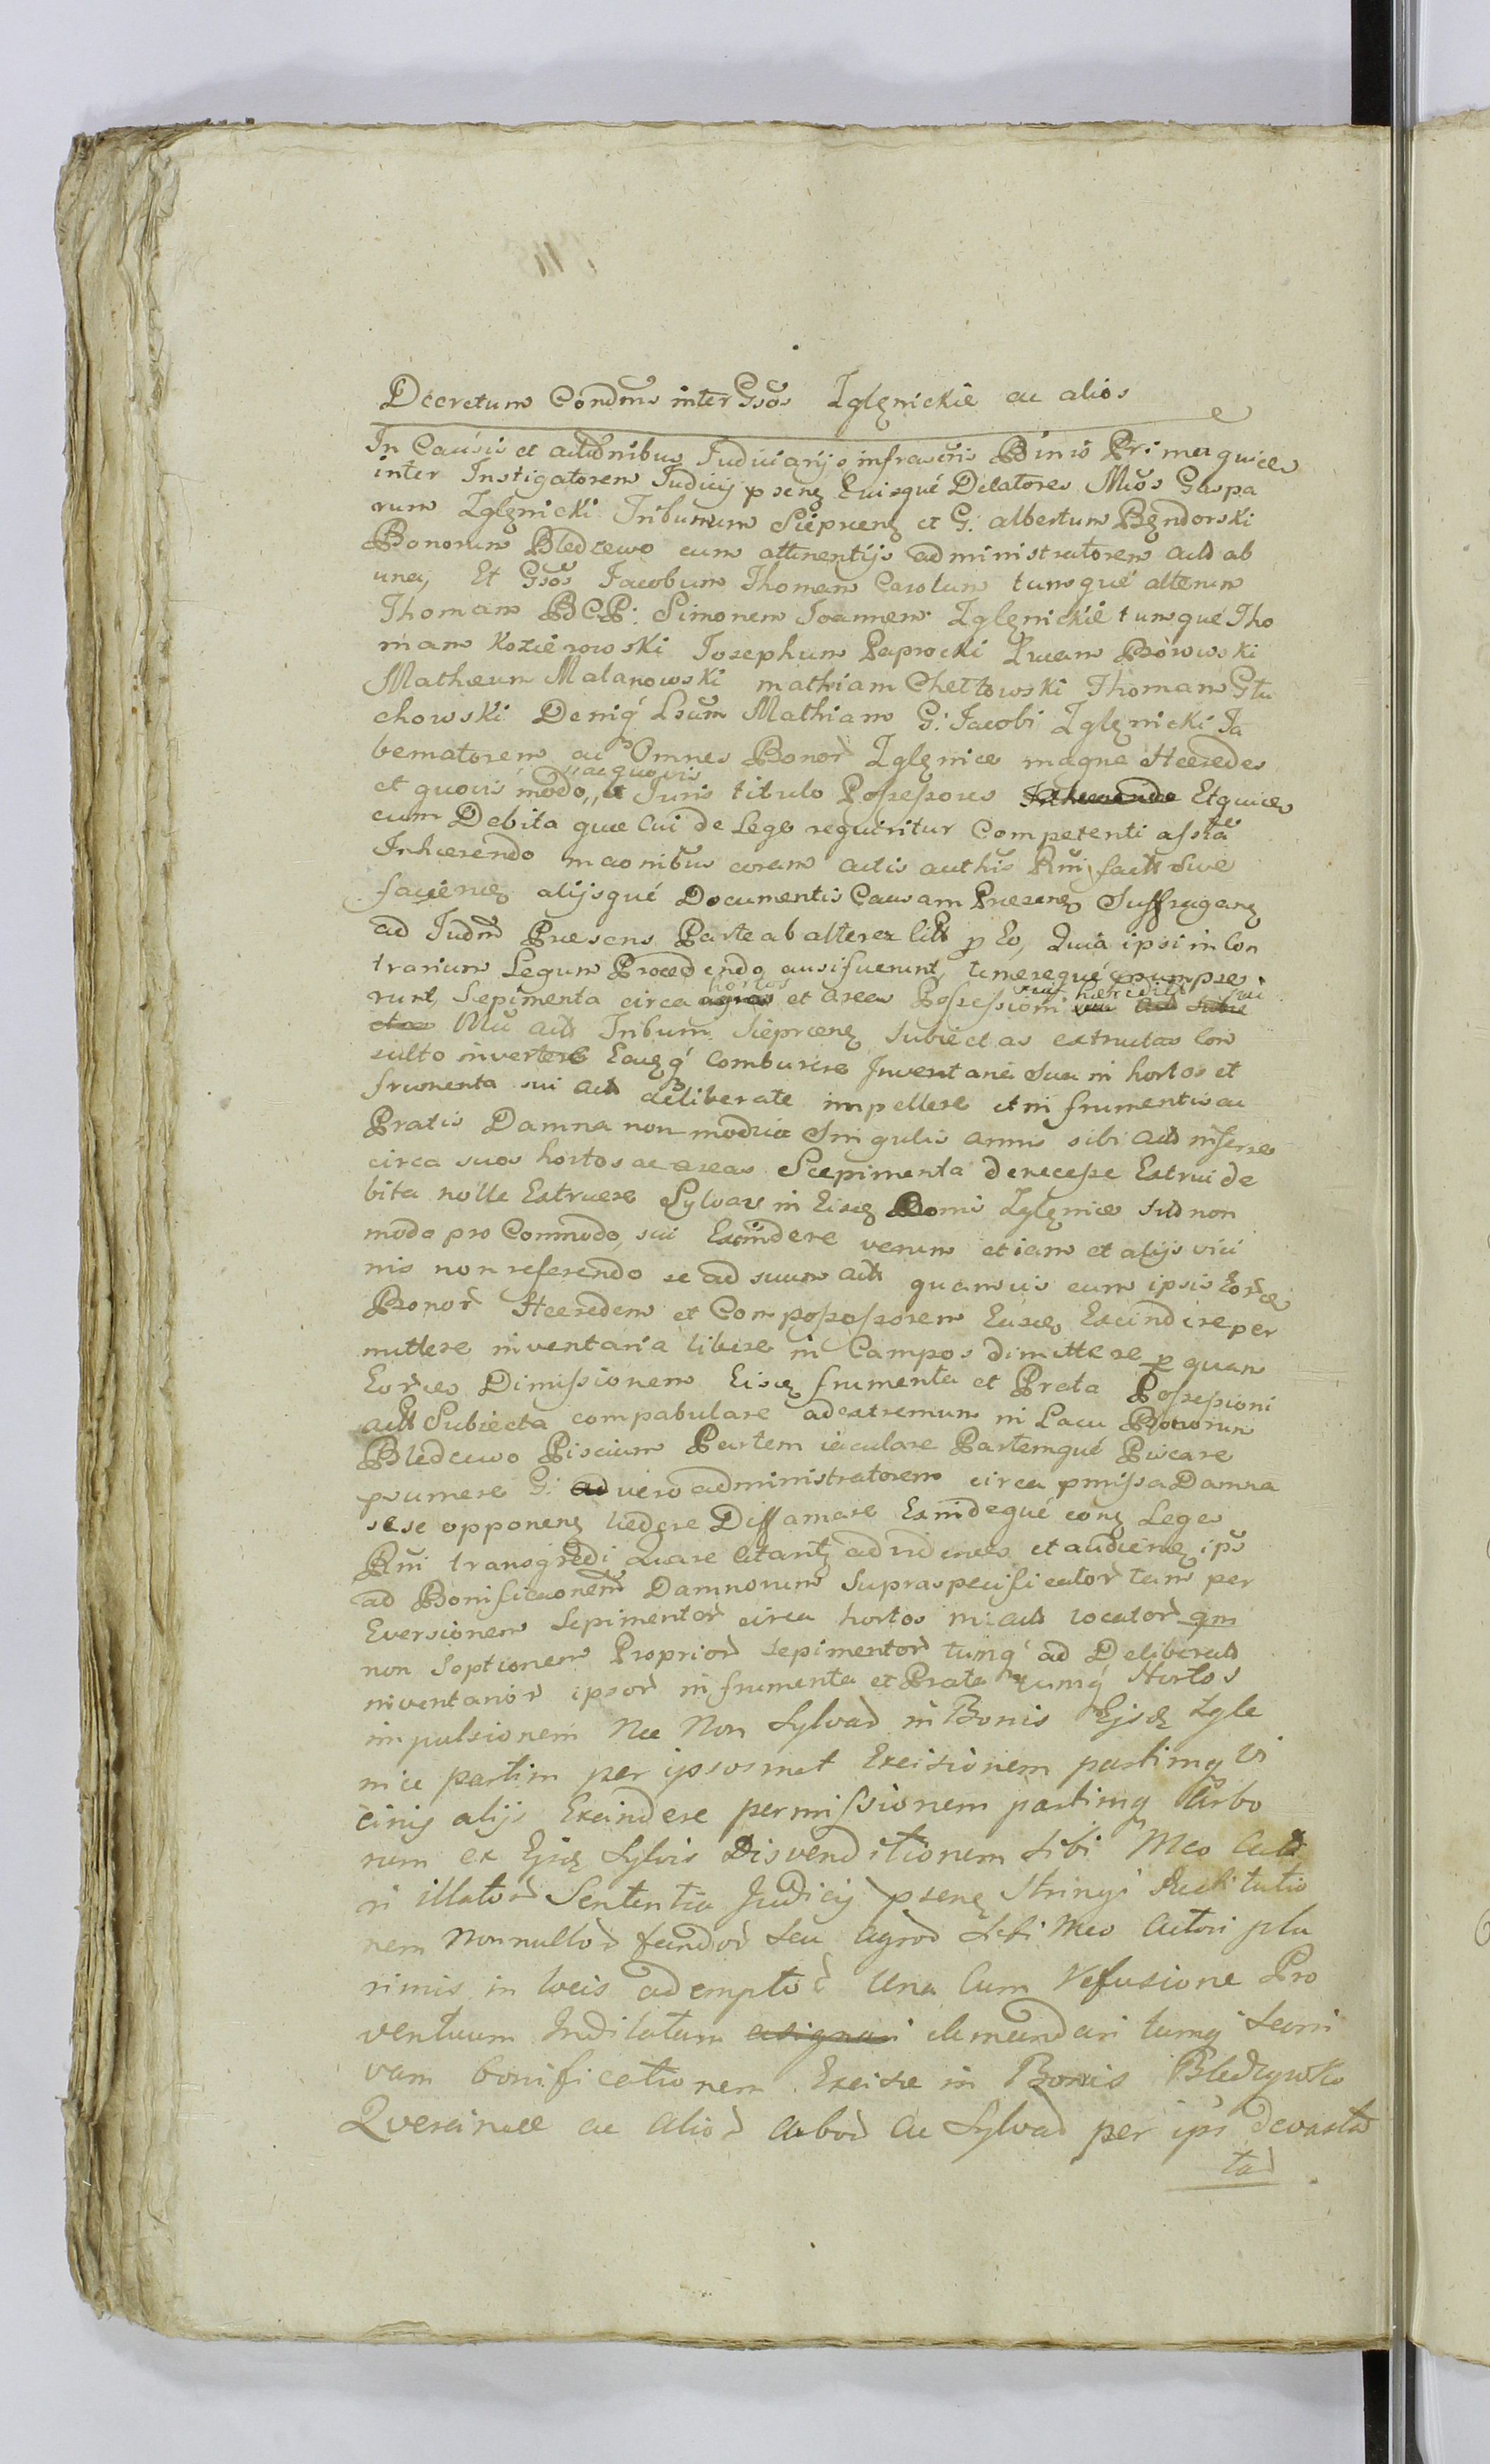 Decretum Condmns inter Gsos Zglęnickie ac alios
In Causis et actionibus Judiciarijs infrascris Binis Prima quidem
inter Instigatorem Judicij psenę Euisqué Delatores Mcos Gaspa
rum Zglęnicki Tribunum Siepcenę et G. albertum Będorski
Bonorum Bledzewo cum attinentijs administratorem act ab
una, Et Gsos Jacobum Thomam Carolum tumqué alterum
Thomam BCP: Simonem Joannem Zglęnickié tumqué Tho
mam Kozierowski Josephum Paprocki Lucam Borowski
Mathæum Malanowski mathiam Chełtowski Thomam Głu
chowski Deniq Lsum Mathiam G: Jacobi Zglęnicki Ta
bernatorem ac Omnes Bonor Zglęnice magna Hæredes
et quovis modo ac quovis Juris titulo Possessores Etquidem
cum Debita quæ Cui de Lege requiritur Competenti assta
Inhærendo maonibus coram actis authis Rni fact sive
faciendę alijsqué Documentis Causam Præsenę Suffragarę
ad Judm Præsens Parte ab altera citt p Eo, Quia ipsi in Con
trarium Legum Procedendo ausi fuerunt, temerequé præmpse
runt, Sepimenta circa hortos et areas Possessioni hæredit sui
Mci act Tribuni Siepcenę subiectas extructas Con
sulto invertere Eaqę comburere Inventaria sua in hortos et
frumenta sui act deliberate impellere et in frumentis ac
Pratis Damna non modica Singulis annis sibi act inferre
circa suos hortos ac areas Scepimenta denecesse Extrui de
bita nolle Extruere Sylvas in Eisdę Bonis Zglęnice sitt non
modo pro Commodo, sui Excindere verum etiam et alijs vici
nis non referendo se ad suum act quamvis cum ipsis Eordem
Bonor Hæredem et Compossessorem Easdem Excindere per
mittere inventaria libere in Campos dimittere p quam
Eordem Dimissionem Eisdę frumenta et Prata Possessioni
act Subiecta compabulare adextremum in Lacu Bonorum
Bledzewo Piscium Partem iaculare Partemqué Piscare
psumere G: vero administratorem circa pmissa Damna
sese opponenę lædere Diffamare Exindequé conę Leges
Rni transgredi Quare Citantę ad videndum et audiendę ips
ad Bonificaonem Damnorum Supraspecificator tam per
Eversionem Sepimentor circa hortos mi act locator qm
non Soptionem Proprior Sepimentor tumq ad Deliberat
inventarior ipsor in frumenta et Prata tumq Hortos
impulsionem Nec Non Sylvar in Bonis Ejsdę Zgle
nice partim per ipsosmet Excisionem partimq Vi
cinis alijs Excindere permissionem partimq Arbo
rum ex Ejsdę Sylvis Disvenditionem Sibi Meo Acto
ri illator Sententia Judicij psenę Stringi Restitutio
nem Nonnullor fundor seu agror Sibi Meo Actori plu
rimis in locis ademptor Una Cum Refusione Pro
ventuum Inditatum demandari tumq Seorsi
vam bonificationem Excisæ in Bonis Bledzewko
Quercinæ ac Alior Arbor ac Sylvar per ips devasta
tar